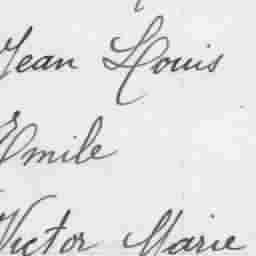 Jean Louis
Emile
Victor Marie